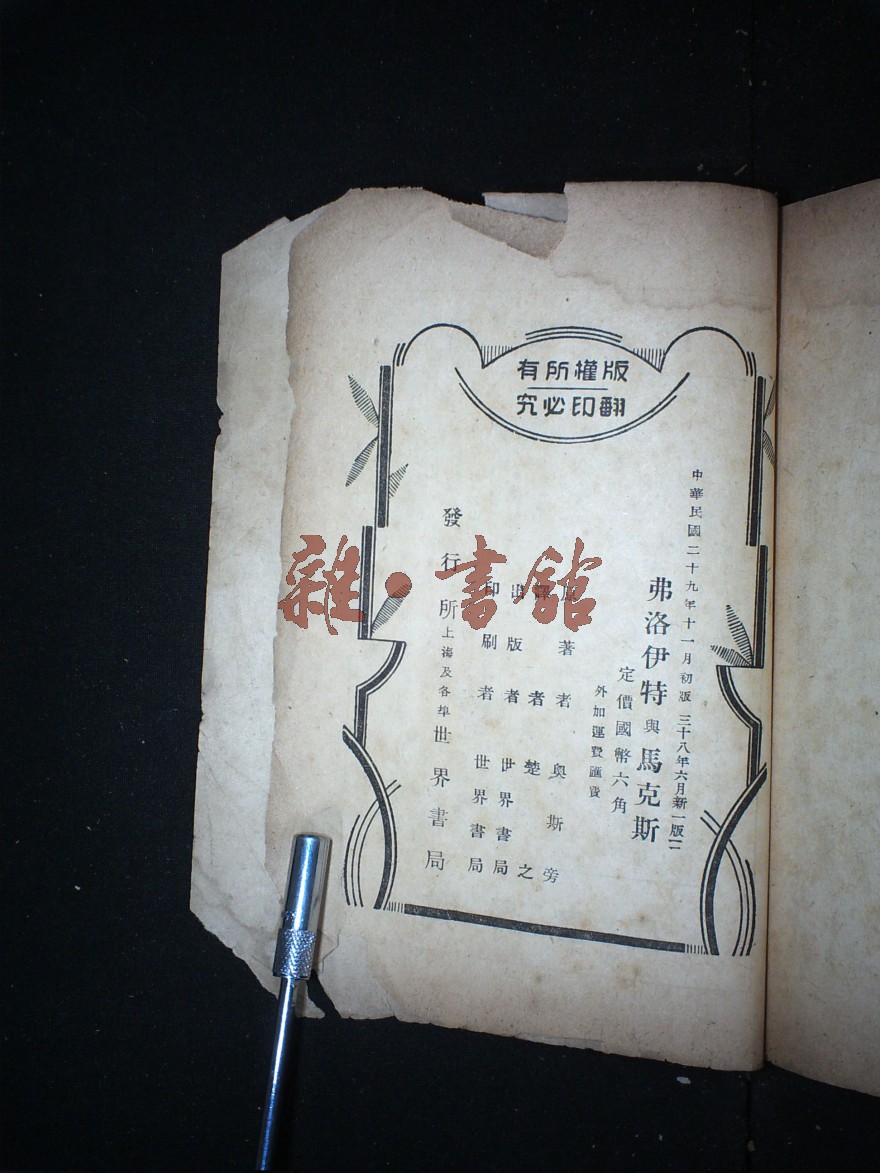 版權所有
翻印必究
中華民國二十九年十一月初版 三十八年六月新一版
弗洛伊特與馬克斯
定價國幣六角
外加運費匯費
原著者 奧斯旁
譯者 楚之
出版者 世界書局
印刷者 世界書局
發行所 上海及各埠 世界書局
雜·書館